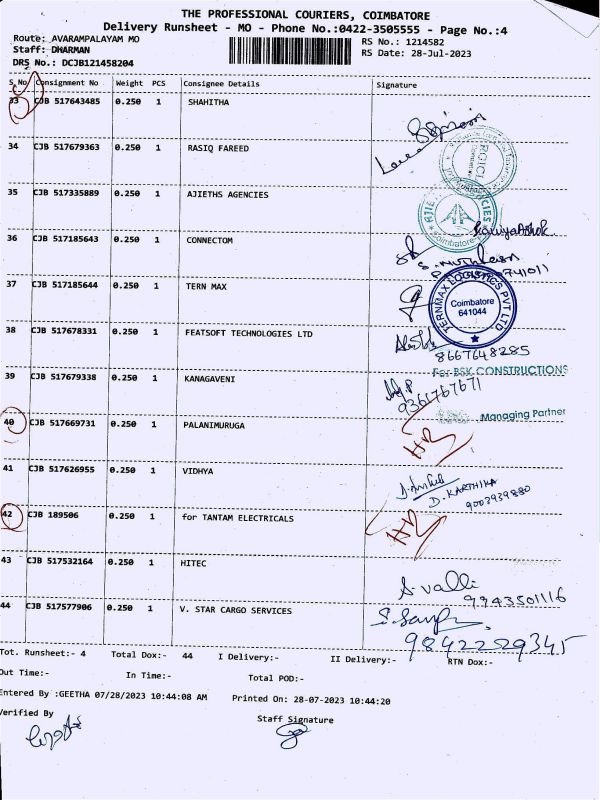 THE PROFESSIONAL COURIERS, COIMBATORE
Delivery Runsheet - MO - Phone No.:0422-3505555 - Page No.:4
Route: AVARAMPALAYAM MO
RS No.: 1214582
Staff: DHARMAN
RS Date: 28-Jul-2023
DRS No.: DCJB121458204
S.No Consignment No Weight PCS Consignee Details Signature
33 CJB 517643485 0.250 1 SHAHITHA
34 CJB 517679363 0.250 1 RASIQ FAREED
35 CJB 517335889 0.250 1 AJIETHS AGENCIES
Coimbatore
36 CJB 517185643 0.250 1 CONNECTOM
37 CJB 517185644 0.250 1 TERN MAX
TERNMAX LOGISTICS PVT LTD
Coimbatore
641044
38 CJB 517678331 0.250 1 FEATSOFT TECHNOLOGIES LTD
8667648285
For BSK CONSTRUCTIONS
39 CJB 517679338 0.250 1 KANAGAVENI
9361767671
Managing Partner
40 CJB 517669731 0.250 1 PALANIMURUGA
41 CJB 517626955 0.250 1 VIDHYA
D. KARTHIKA
9003939880
42 CJB 189506 0.250 1 for TANTAM ELECTRICALS
43 CJB 517532164 0.250 1 HITEC
S. valli
9943501116
44 CJB 517577906 0.250 1 V. STAR CARGO SERVICES
9842229345
Tot. Runsheet:- 4 Total Dox:- 44 I Delivery:- II Delivery:- RTN Dox:-
Out Time:- In Time:- Total POD:-
Entered By :GEETHA 07/28/2023 10:44:08 AM Printed On: 28-07-2023 10:44:20
Verified By Staff Signature